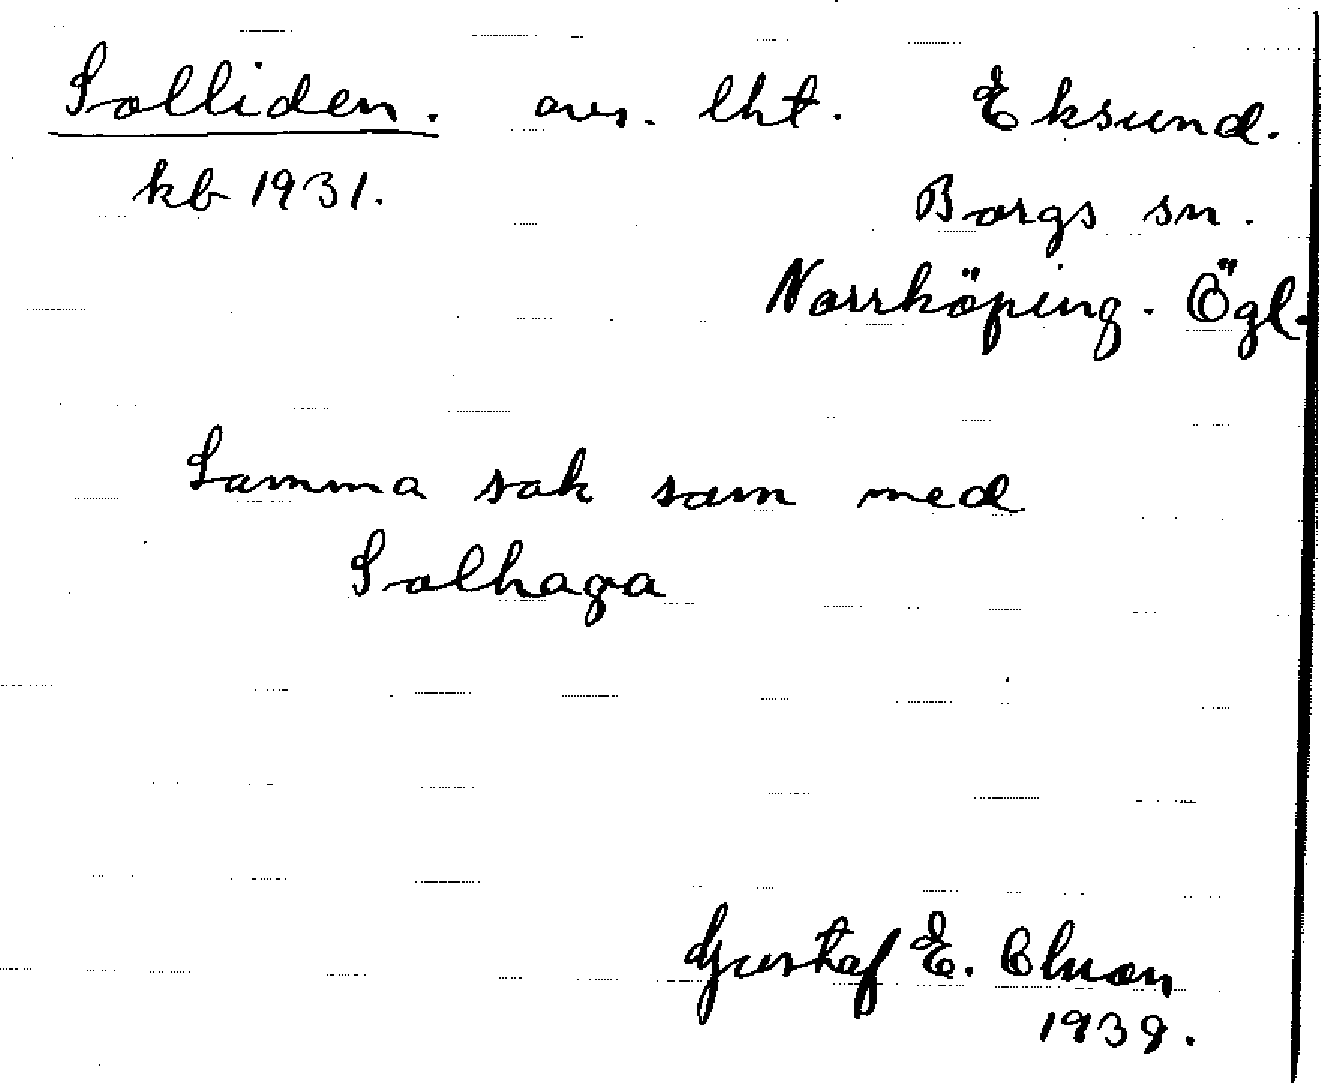 Solliden. avs. lht. Eksund.
kb 1931. Borgs sn.
Norrköping. Ögl.
Samma sak som med
Solhaga
Gustaf E.
1939.